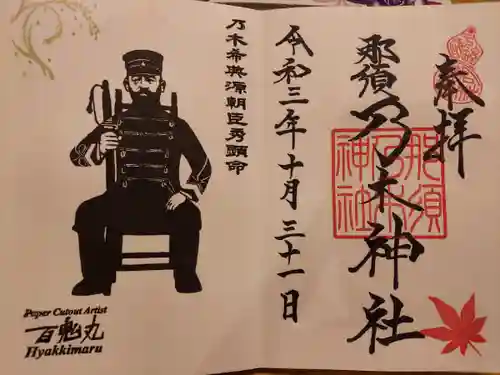 奉拝
那須乃木神社
那須乃木神社
令和三年十月三十一日
乃木希典源朝臣秀顕命
Paper Cutout Artist
百鬼丸
Hyakkimaru